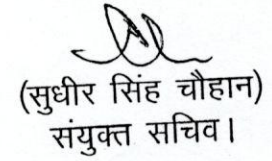 (सुधीर सिंह चौहान)
संयुक्त सचिव।